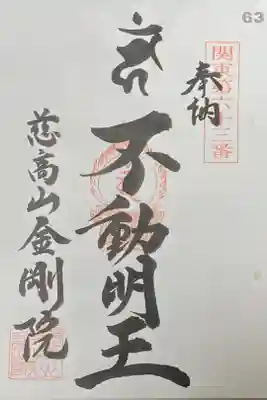 63
奉納
関東第六十三番
不動明王
慈高山金剛院